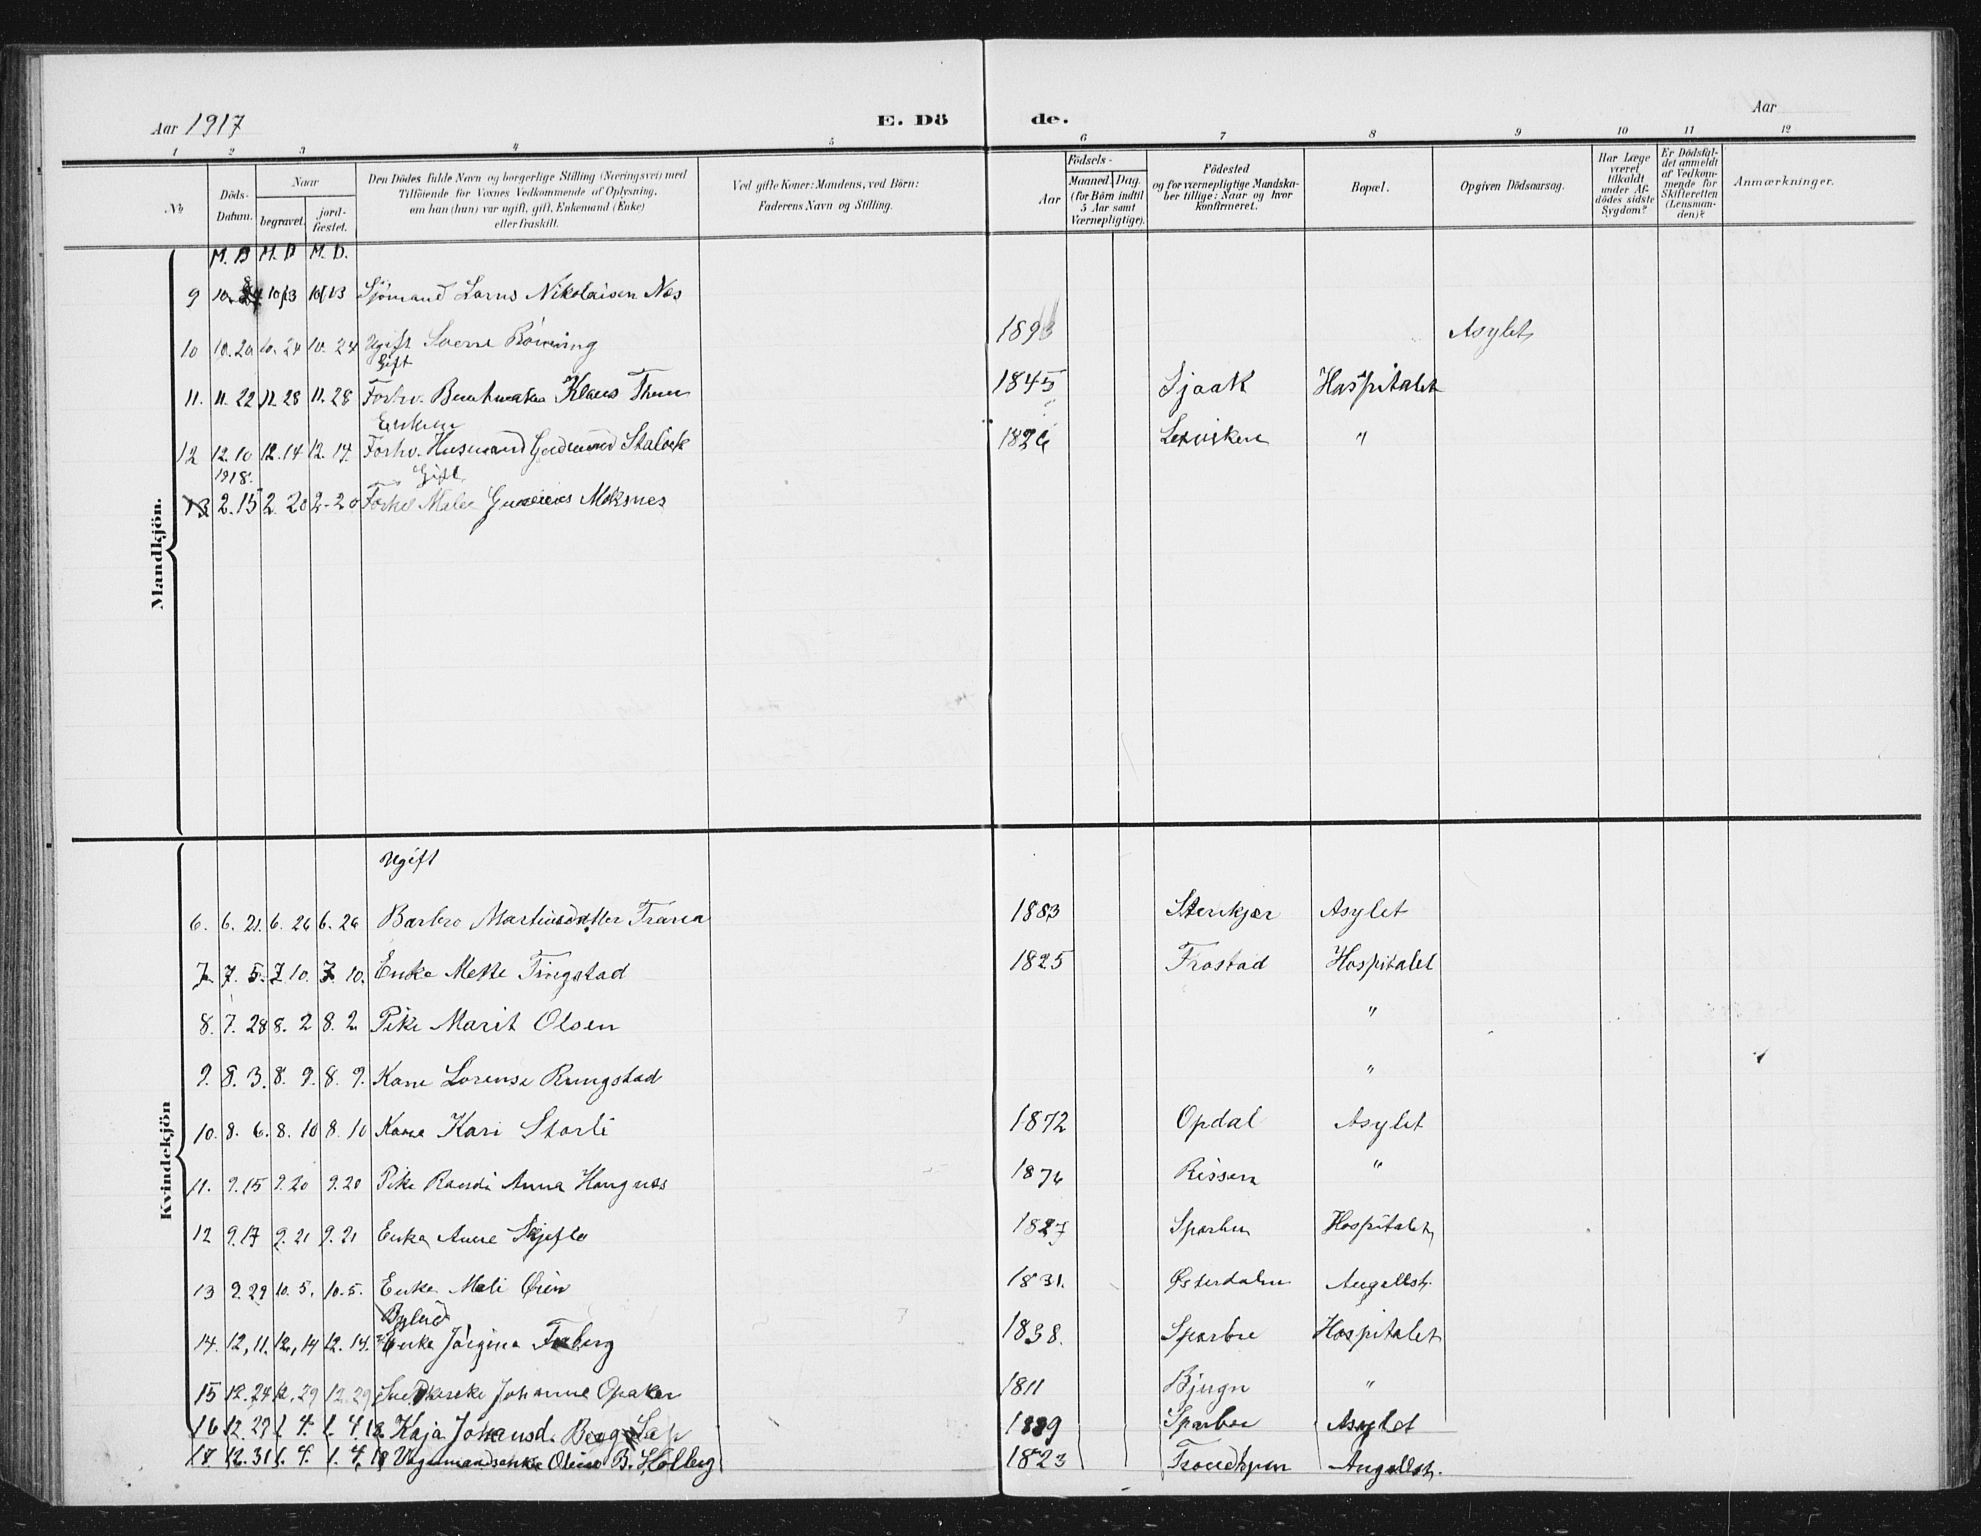 Aar 1917 E. Dö de. Aar
1 2 3 4 5 6 7 8 9 10 11 12
№ Döds-Datum. Naar begravet. jord-fæstet. Den Dödes fulde Navn og borgerlige Stilling (Næringsvei) med Tilföiende for Voxnes Vedkommende af Oplysning, om han (hun) var ugift, gift, Enkemand (Enke) eller fraskilt. Ved gifte Koner: Mandens, ved Börn: Faderens Navn og Stilling. Födsels- Aar Maaned Dag. (for Börn indtil 5 Aar samt Værnepligtige). Födested og for værnepligtige Mandskaber tillige: Naar og hvor konfirmeret. Bopæl. Opgiven Dödsaarsag. Har Læge været tilkaldt under Afdödes sidste Sygdom? Er Dödsfaldet anmeldt af Vedkommende for Skifteretten (Lensmanden)? Anmærkninger.
Mandkjön.
M. D M. D M. D.
9 10/13 10/13 Sjömand Lorns Nikolaisen Næs
10 10.20 10.24 10.24 Ugift Sverre 1893 Asylet
Gift
11. 11.22 11.28 11.28 Forhv. Klaus 1845 Hospitalet
12 12.10 12.14 12.14. Forhv. Husmand 182 Leksviken "
1918. Gift
13 2.15 2.20 2-20 Moksnes
Kvindekjön
Ugift
6. 6.21. 6.26 6.26 Barbro Martinsdatter 1883 Stenkjær Asylet
7. 7.5. 7.10. 7.10. Enke Mette Tingstad 1825 Frostad Hospitalet
8. 7.28 8.2 8.2 Pike Marit Olsen "
9. 8.3. 8.9. 8.9. Kone Lorense Rungstad "
10. 8.6. 8.10 8.10 Kone Kari Storli 1872 Opdal Asylet
11. 9.15 9.20 9.20 Pike Randi Anna Haugnæs 1876 Rissen "
12 9.17 9.21 9.21 Enke Anne Skjefte 1827 Sparbu Hospitalet
13 9.29 10.5. 10.5. Enke Mali Øien 1831. Østerdalen Angellst.
Bylud
14. 12.11. 12.14 12.14. Enke Jörgine 1838. Sparbu Hospitalet
15 12.24 12.29 12.29 Johanne Opaker 1811 Bjugn "
16 12.29 1.4. 1.4.18 Kaja Johansd. 1889 Sparbu Asylet
17 12.31 1.4. 1.4.18 B. Holberg 1823 Trondhjem Angellst.